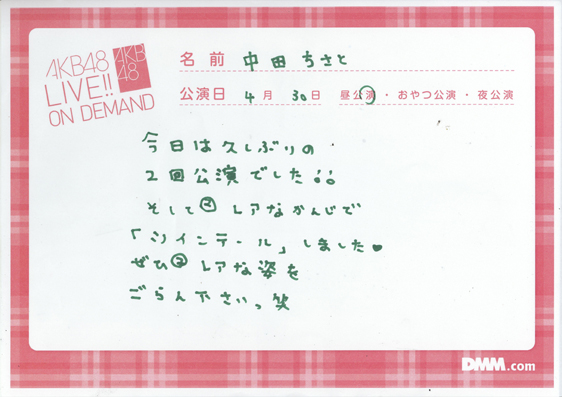 AKB48
LIVE!!
ON DEMAND
AKB
48
名前 中田ちさと
公演日 4月 30日 昼公演・おやつ公演・夜公演
今日は久しぶりの
2回公演でした!!
そして② レアなかんじで
「ツインテール」しました♥
ぜひ② レアな姿を
ごらん下さいっ笑
DMM.com